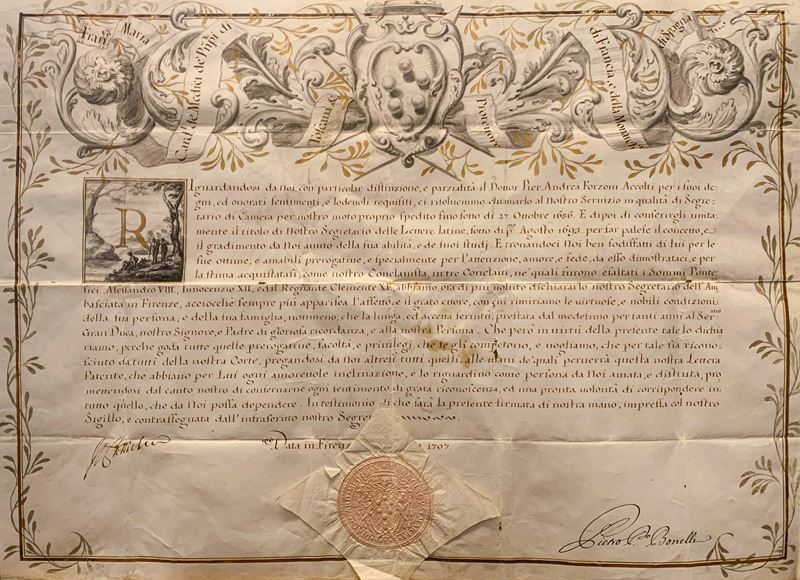 Fran.co Maria
Card.le de Medici de Prñpi di
Toscana &
Protettore
di Francia, e della Monar
di Spagna
RIguardandosi da Noi con particular distinzione, e parzialità il Donor Pier Andrea Forzoni Accolti per i suoi de-
gni, ed onorati sentimenti, e lodevoli requisiti, ci risolvemmo chiamarlo al Nostro Servizio in qualità di Segre-
tario di Camera per nostro moto proprio spedito fino sotto di 27. Ottobre 1686. E dipoi di conferirgli unita-
mente il titolo di Nostro Segretario delle Lettere latine, sotto dì p.º Agosto 1693. per far palese il concetto, e
il gradimento da Noi avuto della sua abilità, e de suoi studj. E trovandoci Noi ben sodisfatti di lui per le
sue ottime, e amabili prerogative, e specialmente per l'attenzione, amore, e fede, da esso dimostrataci, e per
la stima acquistatasi, come nostro Conclavista, in tre Conclavi, ne' quali furono esaltati i Sommi Ponte-
fici, Alessandro VIII, Innocenzio XII, e dal Regnante Clemente XI. abbiamo ora di più voluto dichiararlo nostro Segretario dell'Am
basciata in Firenze, acciocchè sempre più apparisca l'affetto, e il grato cuore, con cui rimiriamo le virtuose, e nobili condizioni
della sua persona, e della sua famiglia, nonmeno, che la lunga, ed accetta servitù, prestata dal medesimo per tanti anni al Ser.mo
Gran Duca, nostro Signore, e Padre di gloriosa ricordanza, e alla nostra Persona. Che però in virtù della presente tale lo dichia
riamo, perche goda tutte quelle prerogative, facoltà, e privilegj, che se gli competono, e vogliamo, che per tale sia ricono-
sciuto da tutti della nostra Corte, pregandosi da Noi altresì tutti quelli, alle mani de' quali perverrà questa nostra Lettera
Patente, che abbiano per Lui ogni amorevole inclinazione, e lo riguardino come persona da Noi amata, e distinta, pro
mettendosi dal canto nostro di conservarne ogni sentimento di grata riconoscenza, ed una pronta volontà di corrispondere in
tutto quello, che da Noi possa dependere. In testimonio di che sarà la presente firmata di nostra mano, impressa col nostro
Sigillo, e contrassegnata dall'infrascritto nostro Segret
Data in Firenz 1707.
Pietro P.º Bonelli